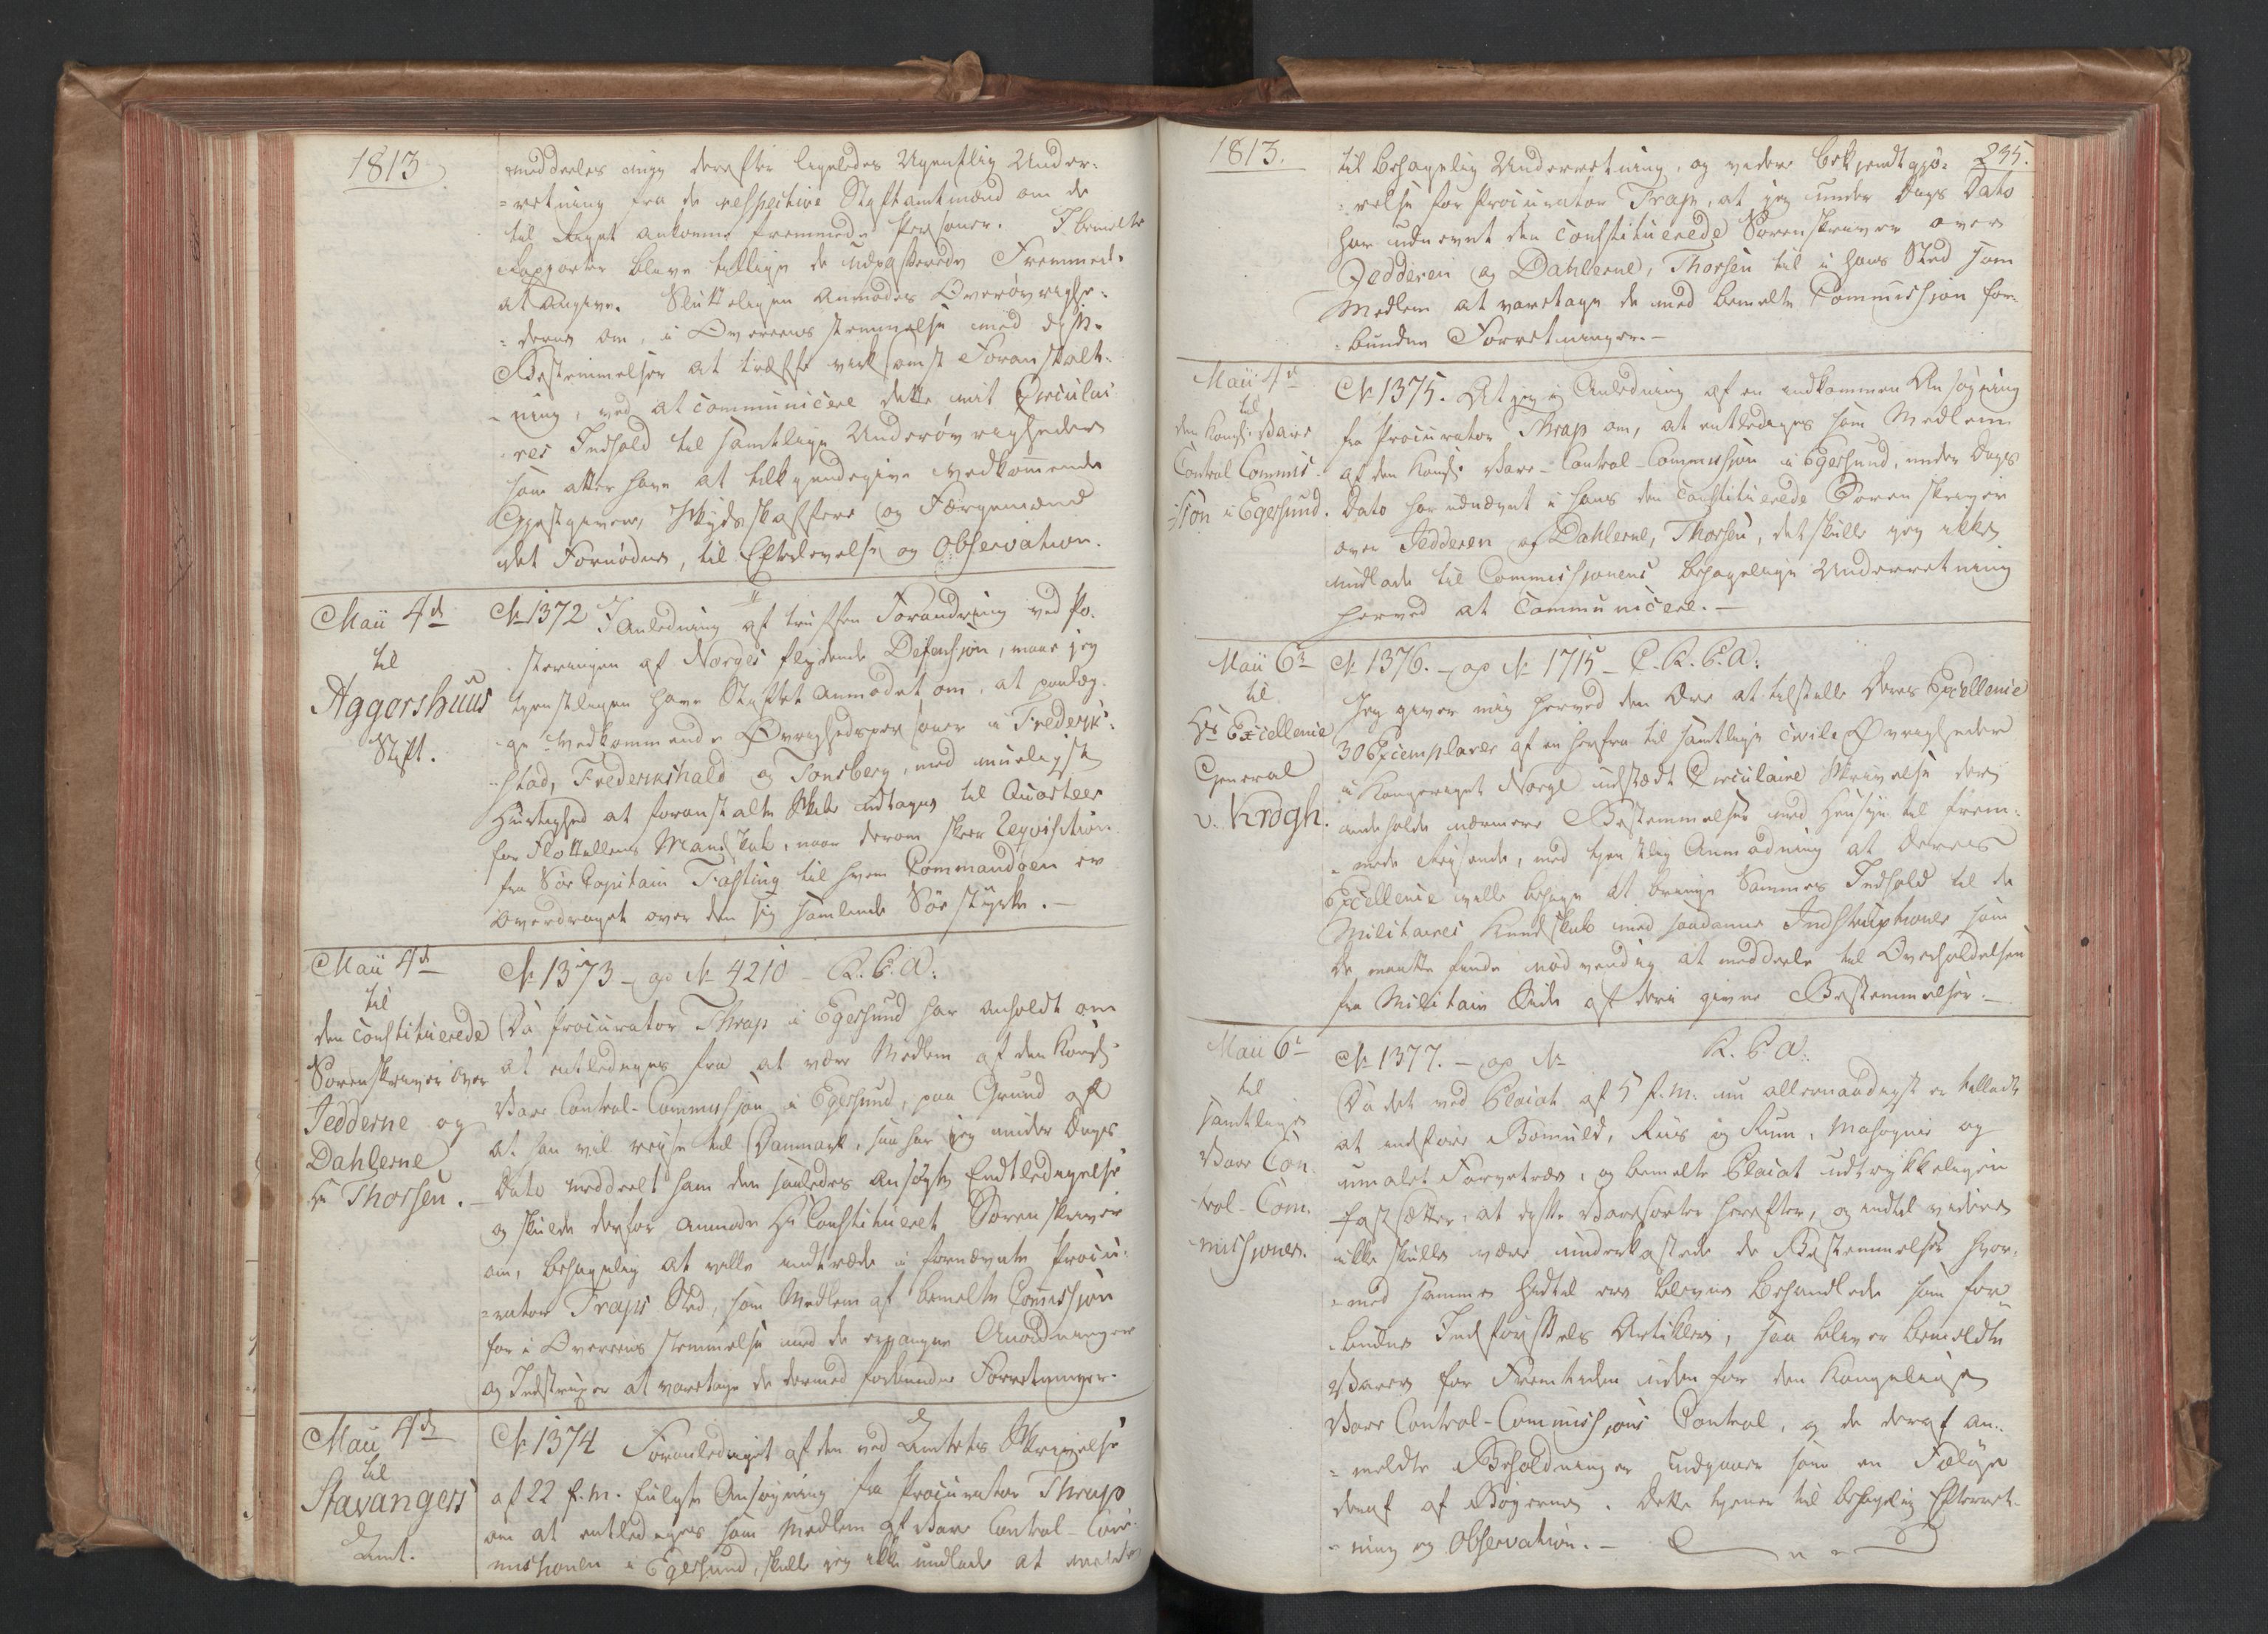 1813
meddeles mig derefter ligeledes Ugentlig Under-
=retning fra de respective Stiftamtmænd om de
til Riget ankomne fremmede Personer. I bemeldte
Rapporter blive tillige de udpasserede Fremmede
at angive. Sluttelig anmodes Øvrighe-
=derne om, i Overeensstemmelse med disse
Bestemmelser at træffe virksomst Foranstalt-
=ning, ved at communicere dette mit Circulai-
res Indhold til samtlige Underøvrigheder
som atter have at tilkjendegive vedkommende
Gjæstgivere, Skydsskaffere og Færgemænd
det Fornødne, til Efterlevelse og Observation.
Maii 4de
til
Aggershuus
Stift.
No 1372 I Anledning af truffen Forandring ved Po-
steringen af Norges flydende Defension, maae jeg
tjenstligen have Stiftet anmodet om, at paalæg-
ge vedkommende Øvrighedspersoner i Frederik-
=stad, Frederikshald og Tonsberg, med mueligst
Hurtighed at foranstalte Skibe udtagne til Quarteer
for Flottillens Mandskab, naar derom skeer Reqvisition
fra Søe Capitain Fasting til hvem Commandoen er
overdraget over den sig samlende Søe styrke.-
Maii 4de
til
den constituerede
Sorenskriver over
Jedderne og
Dahlerne
Hr Thorsen.
No 1373 - ad No 4210 - R. C. A:
Da Procurator Thrap i Egersund har anholdt om
at entlediges fra at være Medlem af den Kongl:
Vare Control-Commission i Egersund, paa Grund af
at han vil reise til Danmark, saa har jeg under Dags
Dato meddeelt ham den saaledes ansøgte Entledigelse
og skulde derfor anmode Hr Constitueret Sorenskriver
om, behagelig at ville indtræde i fornævnte Procu-
=rator Traps Sted, som Medlem af bemelte Commission
for i Overeensstemmelse med de ergangne Anordninger
og Instruxer at varetage de dermed forbundne Forretninger.
Maii 4de
til
Stavangers
Amt.
No 1374 Foranlediget af den ved Amtets Skrivelse
af 22 f. M. fulgte Ansøgning fra Procurator Thrap
om at entlediges som Medlem af Vare Control-Com-
missionen i Egersund, skulle jeg ikke undlade at melde
1813.
235.
til behagelig Underretning, og videre bekjendtgjø-
=relse for Procurator Trap, at jeg under Dags Dato
har udnevnt den constituerede Sorenskriver over
Jedderen og Dahlerne, Thorsen til i hans Sted som
Medlem at varetage de med bemelte Commission for-
=bundne Forretninger.-
Maii 4de
til
den Kongl. Vare
Control Commis-
=sion i Egersund.
No 1375. At jeg i Anledning af en indkommen Ansøgning
fra Procurator Thrap om, at entlediges som Medlem
af den Kongl. Vare-Control-Commission i Egersund, under Dags
Dato har udnævnt i hans den Constituerede Sorenskriver
over Jedderen og Dahlerne, Thorsen, det skulle jeg ikke
undlade til Commissionens behagelige Underretning
herved at Communicere.-
Maii 6te
til
Hs Excellence
General
v. Krogh.
No 1376. - ad No 1715 - C. R. C. A:
Jeg giver mig herved den Ære at tilstille Deres Excellence
30 Exemplarer af en herfra til samtlige civile Øvrigheder
i Kongeriget Norge udstædt Circulaire Skrivelse der
indeholde nærmere Bestemmelser med Hensyn til frem-
=mede Reisende, med tjenstlig Anmodning at Deres
Excellence ville behage at bringe Sammes Indhold til de
Militaires Kundskab med saadanne Instruxtioner som
De maatte finde nødvendig at meddeele til Overholdelsen
fra Militair Side af deri givne Bestemmelser.-
Maii 6te
til
samtlige
Vare Con-
trol-Com-
missioner.
No 1377. - ad No R. C. A:
Da det ved Placat af 5 f. M. nu allernaadigst er tilladt
at indføre Bomuld, Riis og Rum, Mahogni og
umalet Farvetræe, og bemelte Placat udtrykkeligen
fastsætter, at disse Varesorter herefter, og indtil videre
ikke skulle være underkastede de Bestemmelser hvor-
=med samme hidtil ere blevne behandlede som for-
budne Indførsels Artikler, saa bliver bemeldte
Varer for Fremtiden uden for den Kongelige
Vare Control-Commissions Control, og de deraf an-
=meldte Beholdninger udgaaer som en Følge
deraf af Bøgerne. Dette tjener til behagelig Efterret-
=ning og Observation.-